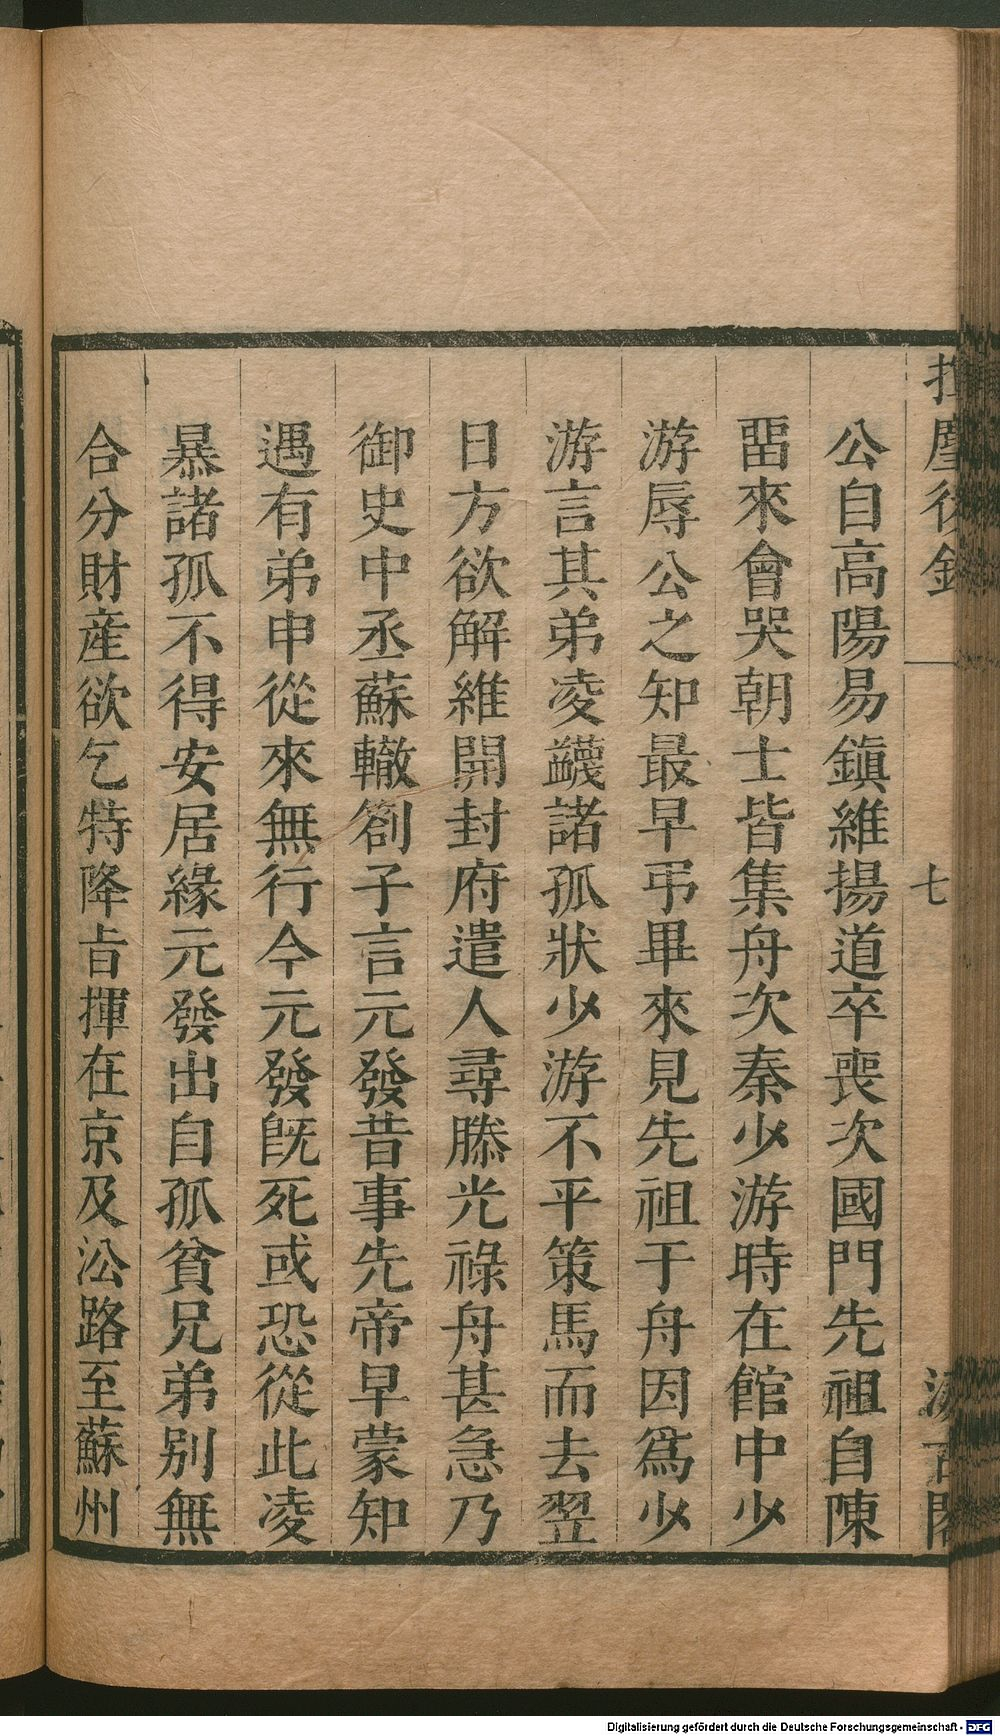 揮麈後錄
七
汲古閣
公自高陽易鎮維揚道卒喪次國門先祖自陳
畱來會哭朝士皆集舟次秦少游時在館中少
游辱公之知最早弔畢來見先祖于舟因爲少
游言其弟凌衊諸孤狀少游不平策馬而去翌
日方欲解維開封府遣人尋滕光祿舟甚急乃
御史中丞蘇轍劄子言元發昔事先帝早蒙知
遇有弟申從來無行今元發旣死或恐從此凌
暴諸孤不得安居緣元發出自孤貧兄弟别無
合分財産欲乞特降㫖揮在京及㳂路至蘇州
Digitalisierung gefördert durch die Deutsche Forschungsgemeinschaft - DFG